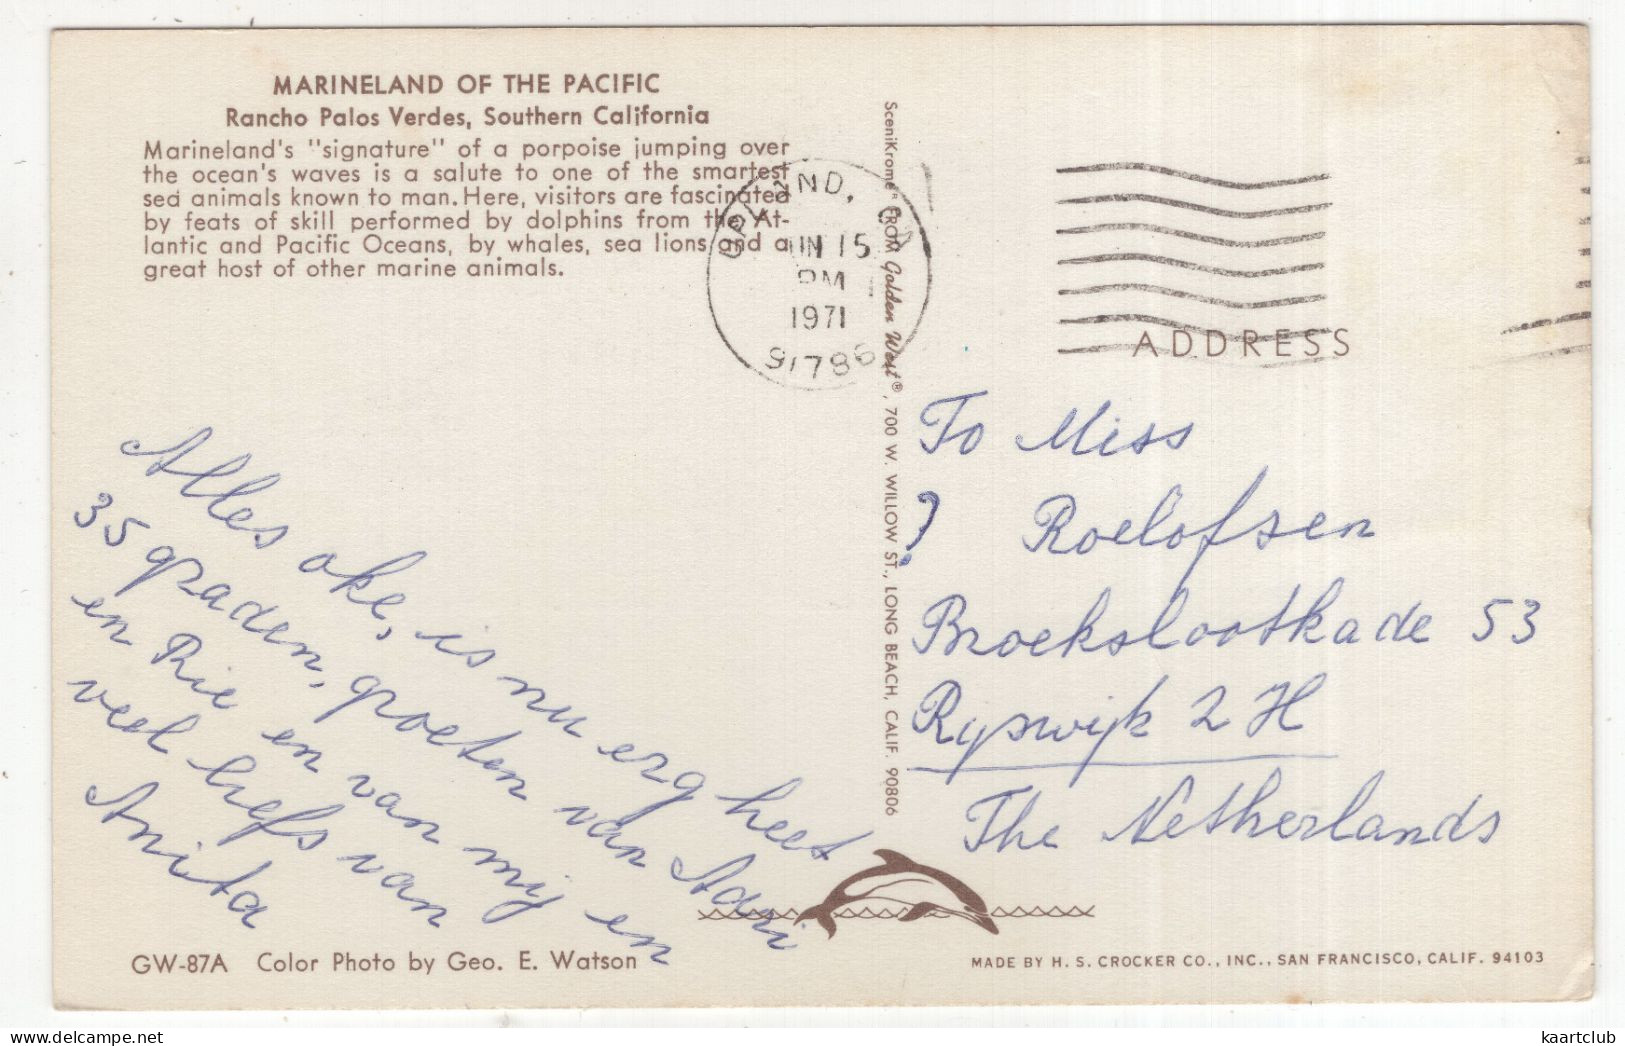 MARINELAND OF THE PACIFIC
Rancho Palos Verdes, Southern California
Marineland's "signature" of a porpoise jumping over
the ocean's waves is a salute to one of the smartest
sea animals known to man. Here, visitors are fascinated
by feats of skill performed by dolphins from the At-
lantic and Pacific Oceans, by whales, sea lions and a
great host of other marine animals.
UPLAND, CA
JUN 15
PM
1971
91786
Alles oke, is nu erg heet
35 graden, groeten van Aari
en Rie en van mij en
veel liefs van
Anita
GW-87A Color Photo by Geo. E. Watson
SceniKrome® FROM Golden West®, 700 W. WILLOW ST., LONG BEACH, CALIF. 90806
ADDRESS
To Miss
? Roelofsen
Broekslootkade 53
Ryswijk 2 H
The Netherlands
MADE BY H. S. CROCKER CO., INC., SAN FRANCISCO, CALIF. 94103
www.delcampe.net
kaartclub